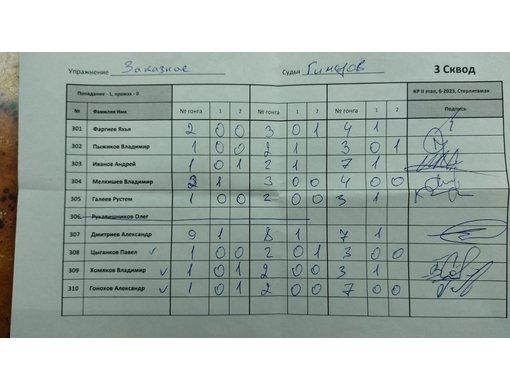 Упражнение Заказное Судья Гимаров 3 Сквод
Попадание - 1, промах - 0 КР II этап, 6-2023, Стерлитамак
№ Фамилия Имя № гонга 1 2 № гонга 1 2 № гонга 1 2 Подпись
301 Фаргиев Яхья 2 0 0 3 0 1 4 1
302 Пыжиков Владимир 1 0 0 2 1 3 0 1
303 Иванов Андрей 1 0 1 2 1 7 1
304 Мелкишев Владимир 2 1 3 0 0 4 0 0
305 Галеев Рустем 1 0 0 2 0 0 3 1
306 Рукавишников Олег
307 Дмитриев Александр 9 1 8 1 7 1
308 Цыганков Павел 1 0 0 2 0 1 3 0 0
309 Хомяков Владимир 1 0 1 2 0 0 3 1
310 Гонохов Александр 1 0 1 2 0 0 7 0 0